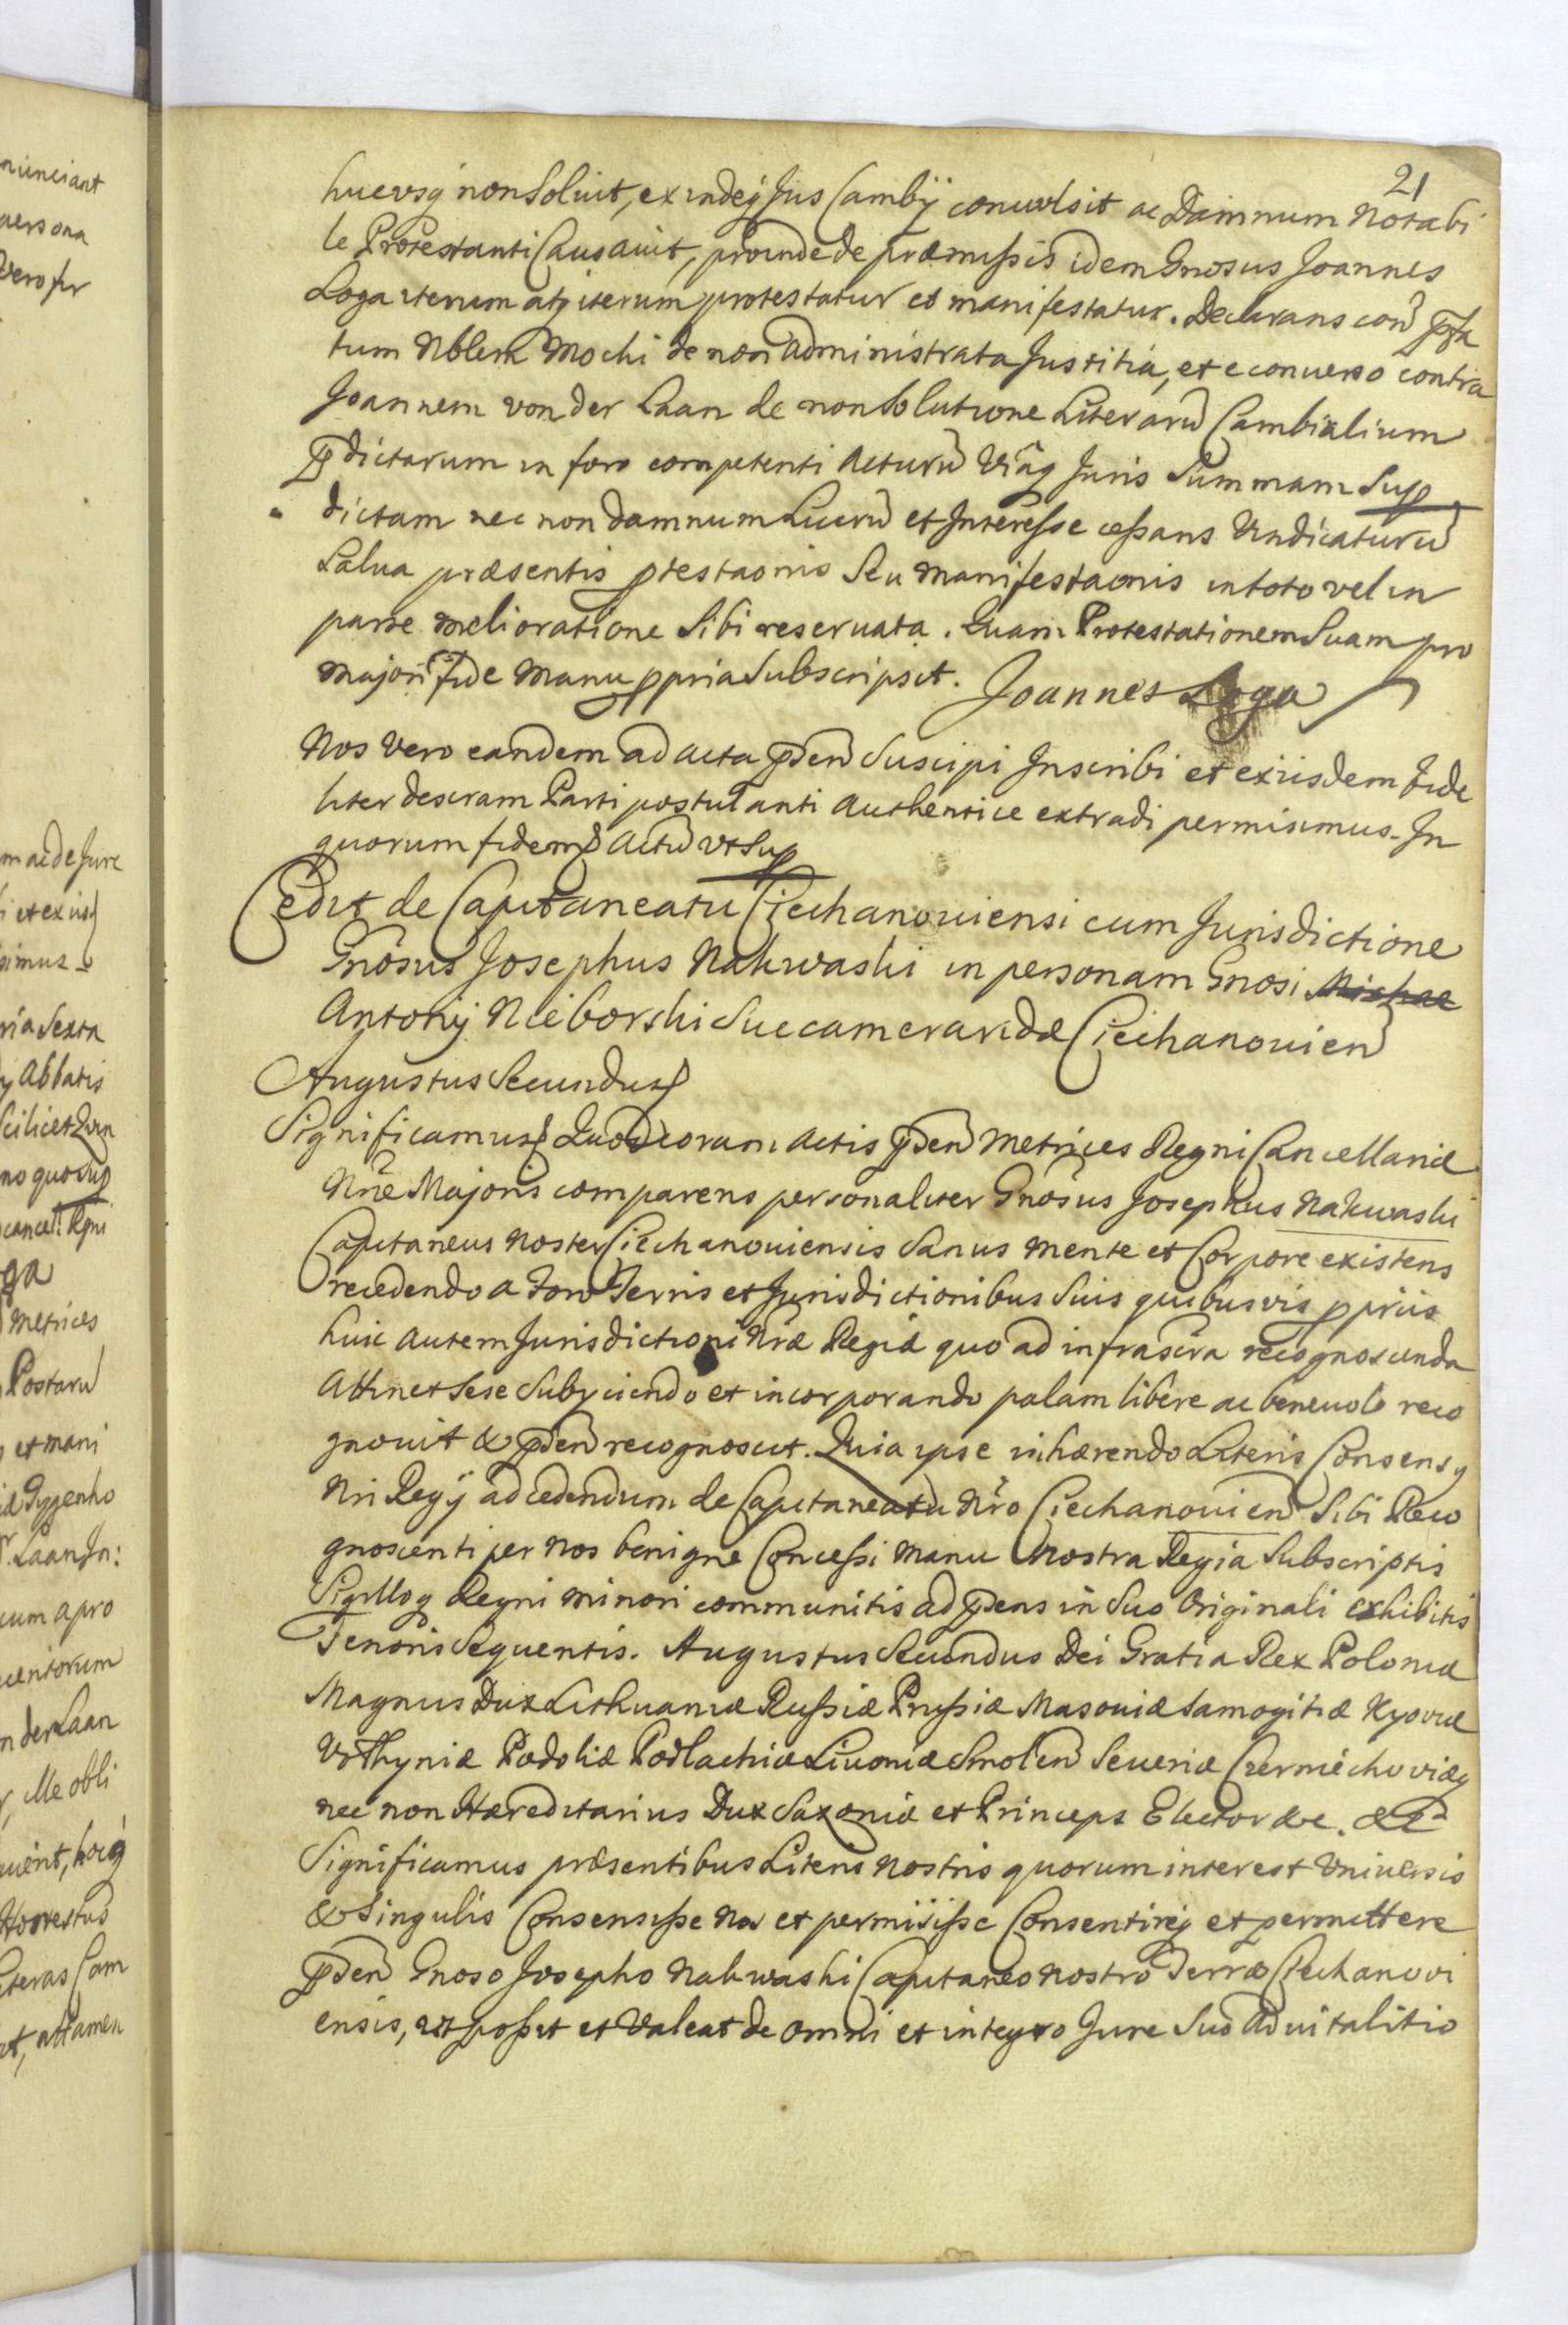 21
hucusq́ non Soluit, ex indeq́ Jus Cambÿ conuulsit ac Damnum Notabi
le Protestanti Causauit, proinde de præmissis idem Gnosus Joannes
Loga iterum atq́ iterum protestatur et manifestatur. Declarans con̄ præfa
tum Nblem Mochi de non administrata Justitia, et e conuerso contra
Joannem von der Laan de non Solutione Literarū Cambialium
p̄dictarum in foro competenti Acturū Viaq́ Juris Summam Sup
dictam nec non damnum Lucrū et Interesse cessans Vindicaturū
Salua præsentis ptestaōnis Seu Manifestaōnis in toto vel in
parte melioratione Sibi reseruata. Quam Protestationem Suam pro
majori fide Manu ppria Subscripsit. Joannes Loga
Nos Vero eandem ad Acta p̄sen̄ Suscipi Inscribi et ex iisdem fide
liter descrām Parti postulanti Authentice extradi permisimus. In
quorum fidem Actū vt Sup
Cedit de Capitaneatu Ciechanouiensi cum Jurisdictione
Gnōsus Josephus Nakwaski in personam Gnosi Michae
Antonÿ Nieborski Succameraridæ Ciechanouien̄
Augustus Secundus
Significamus Quod coram Actis p̄sen̄ Metrices Regni Cancellariæ
Nr̄æ Majoris comparens personaliter Gnōsus Josephus Nakwaski
Capitaneus Noster Ciechanouiensis Sanus Mente et Corpore existens
recedendo a Foro Terris et Jurisdictionibus Suis quibusvis ppriis
huic Autem Jurisdictioni Nr̄æ Regiæ quo ad infrascr̄a recognoscenda
Attinet Sese Subÿciendo et incorporando palam libere ac beneuole reco
gnouit & p̄sen̄ recognoscit. Quia ipse inhærendo Literis Consensq
Nri Regÿ ad cedendum de Capitaneatu Nr̄o Ciechanouien̄ Sibi Reco
gnoscenti per Nos benigne Concessi Manu Nostra Regia Subscriptis
Sigilloq́ Regni Minori communitis ad p̄sens in Suo Originali exhibitis
Tenoris Sequentis. Augustus Secundus Dei Gratia Rex Poloniæ
Magnus Dux Lithuaniæ Russiæ Prussiæ Masouiæ Samogitiæ Kyouiæ
Volhyniæ Podoliæ Podlachiæ Liuoniæ Smolen̄ Seueriæ Czerniechouiæq
nec non Hæreditarius Dux Saxoniæ et Princeps Elector &c. &c
Significamus præsentibus Literis Nostris quorum interest Vniuersis
& Singulis Consensisse Nos et permisisse Consentireq́ et permittere
p̄sen̄ Gnoso Josepho Nakwaski Capitaneo Nostro Terræ Ciechanoui
ensis, vt possit et Valeat de omni et integro Jure Suo Aduitalitio